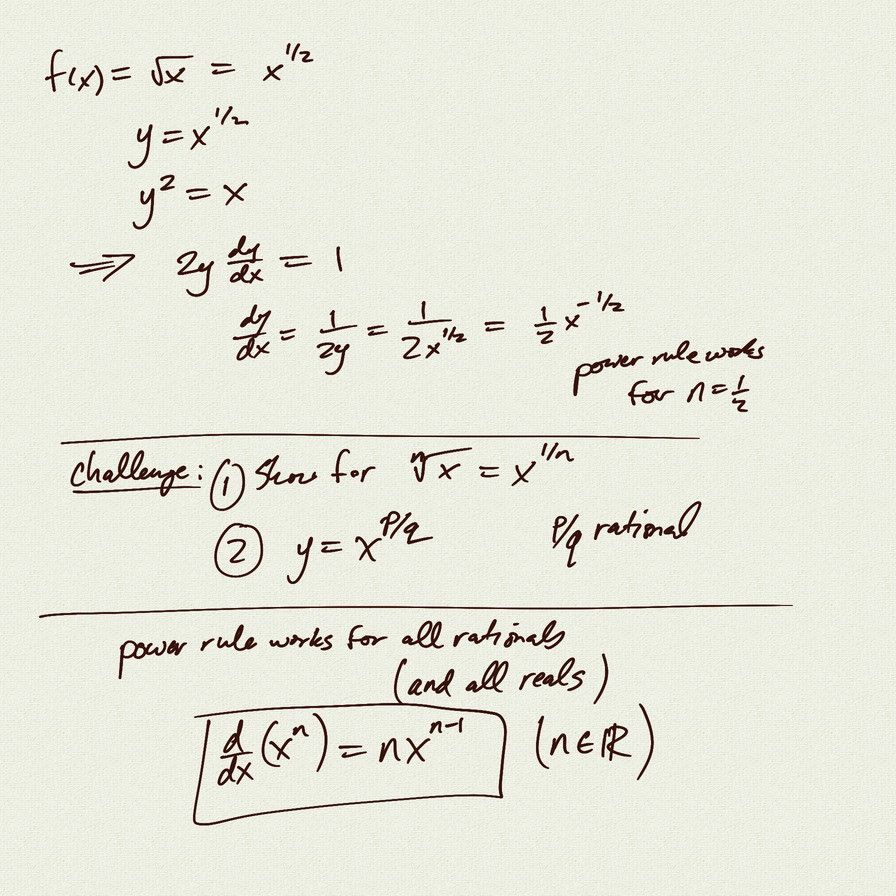 f(x) = √x = x^{1/2}
y = x^{1/2}
y² = x
⟹ 2y dy/dx = 1
dy/dx = 1/(2y) = 1/(2x^{1/2}) = 1/2 x^{-1/2}
power rule works
for n = 1/2
challenge: ① Show for ⁿ√x = x^{1/n}
② y = x^{p/q} p/q rational
power rule works for all rationals
(and all reals)
d/dx (xⁿ) = nx^{n-1} (n ∈ ℝ)